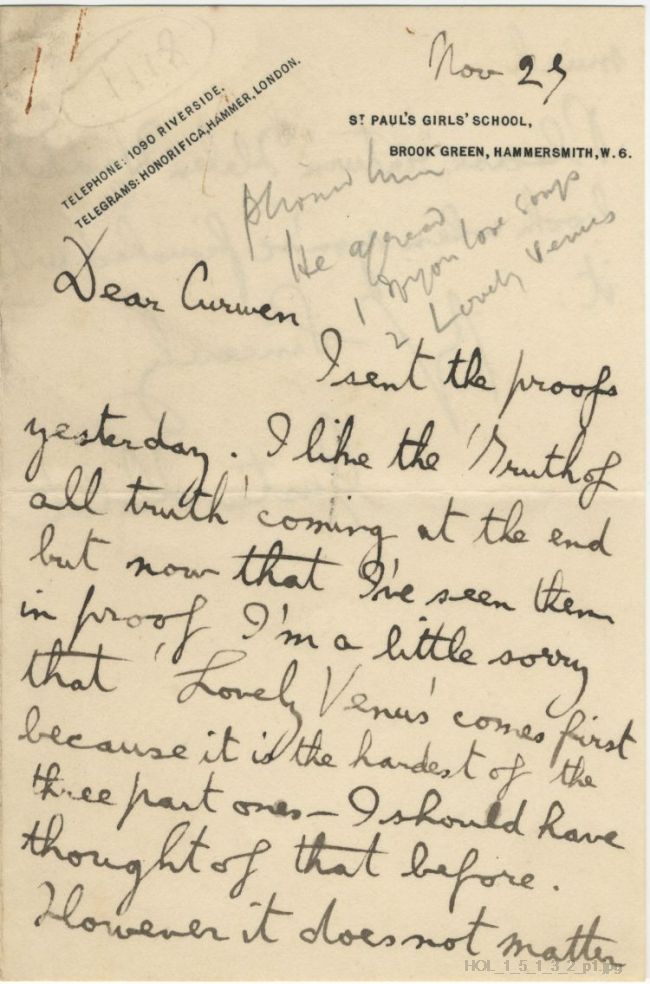 1118
Nov 29
TELEPHONE: 1090 RIVERSIDE.
TELEGRAMS: HONORIFICA, HAMMER, LONDON.
ST PAUL'S GIRLS' SCHOOL,
BROOK GREEN, HAMMERSMITH, W. 6.
Phoned him
He agreed
1 If you love songs
2 Lovely Venus
Dear Curwen
I sent the proofs
yesterday. I like the 'Truth of
all truth' coming at the end
but now that I've seen them
in proof I'm a little sorry
that 'Lovely Venus' comes first
because it is the hardest of the
three part ones – I should have
thought of that before.
However it does not matter
HOL_1_5_1_3_2_p1.jpg